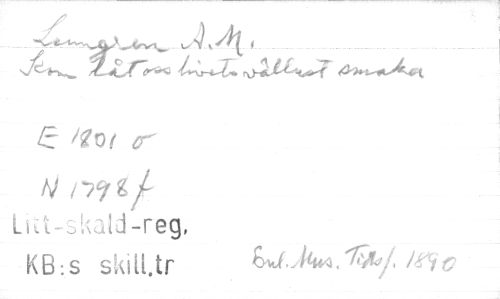 Lenngren A.M.
Kom låt oss livets vällust smaka
E 1801 o
N 1798 f
Litt-skald-reg.
KB:s skill.tr
Enl. Mus. Tidsf. 1890